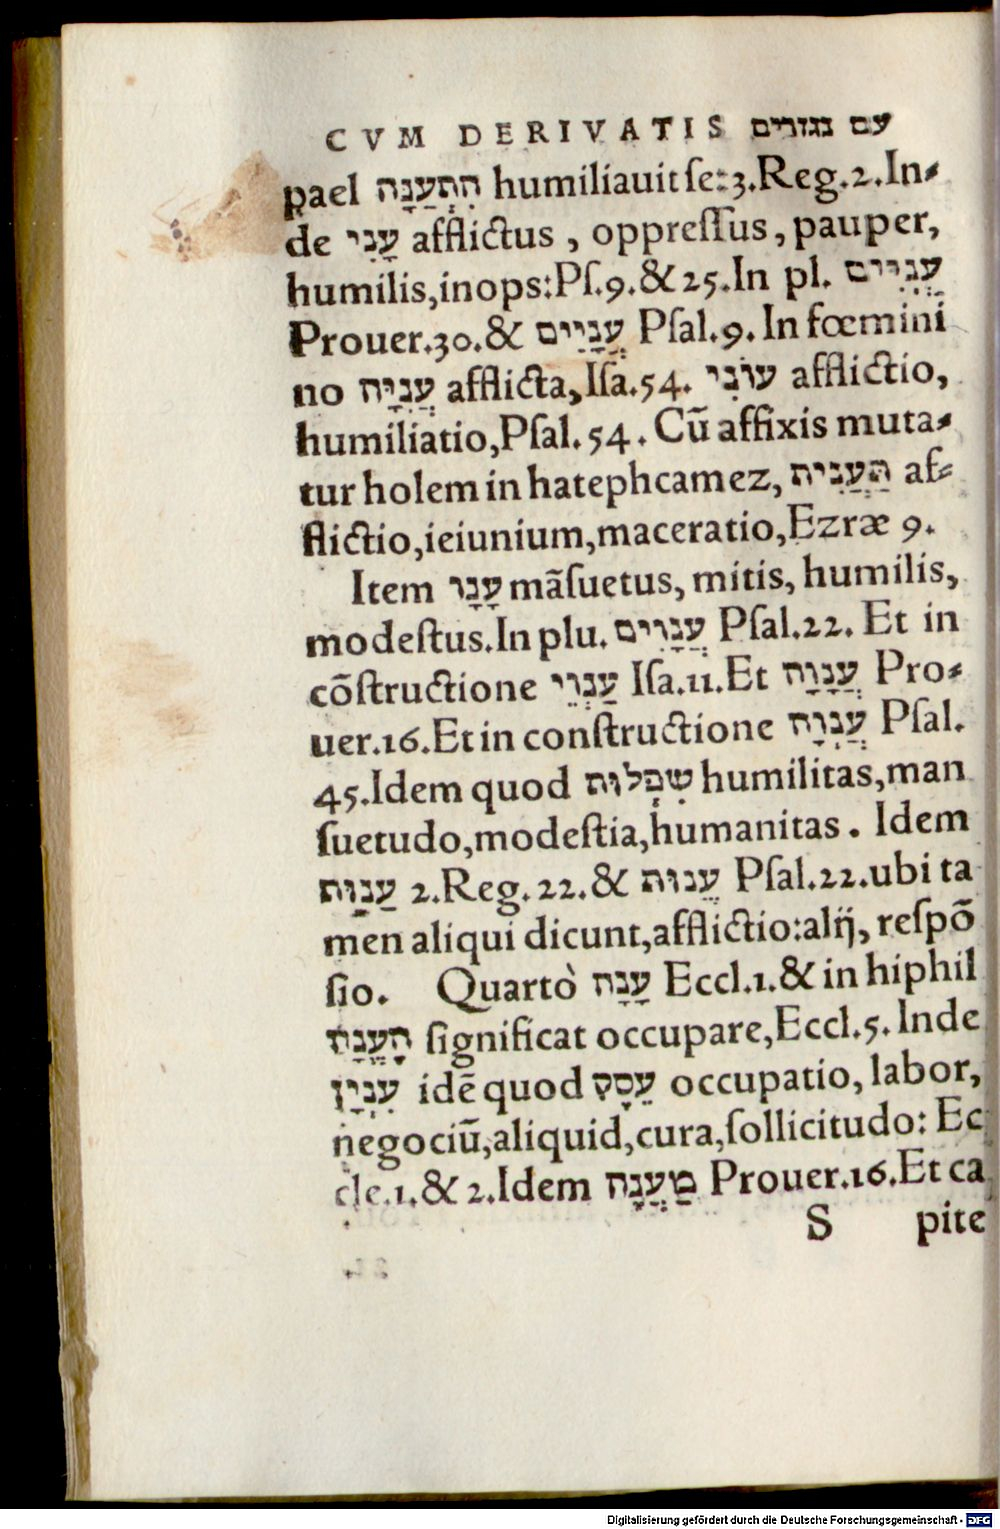 CVM DERIVATIS עם נגזרים
pael הִתְעַנָּה humiliauit ſe: 3.Reg.2.In-
de עָנִי afflictus, oppreſſus, pauper,
humilis, inops: Pſ.9.& 25.In pl. עֲנִיִּים
Prouer.30.& עֲנָיִים Pſal.9. In fœmini
no עֲנִיָּה afflicta, Iſa.54. עוֹנִי afflictio,
humiliatio, Pſal.54. Cū affixis muta-
tur holem in hatephcamez, תַּעֲנִית af-
flictio, ieiunium, maceratio, Ezræ 9.
Item עָנָו māſuetus, mitis, humilis,
modeſtus.In plu. עֲנָוִים Pſal.22. Et in
cōſtructione עַנְוֵי Iſa.11.Et עֲנָוָה Pro-
uer.16.Et in conſtructione עֲנְוָה Pſal.
45.Idem quod שִׁפְלוּת humilitas, man
ſuetudo, modeſtia, humanitas. Idem
עַנְוַת 2.Reg.22.& עֱנוּת Pſal.22.ubi ta
men aliqui dicunt, afflictio: alij, reſpō
ſio. Quartò עָנָה Eccl.1.& in hiphil
הֶעֱנָה ſignificat occupare, Eccl.5. Inde
עִנְיָן idē quod עֵסֶק occupatio, labor,
negociū, aliquid, cura, ſollicitudo: Ec
cle.1.& 2.Idem מַעֲנֶה Prouer.16.Et ca
S pite
Digitalisierung gefördert durch die Deutsche Forschungsgemeinschaft - DFG